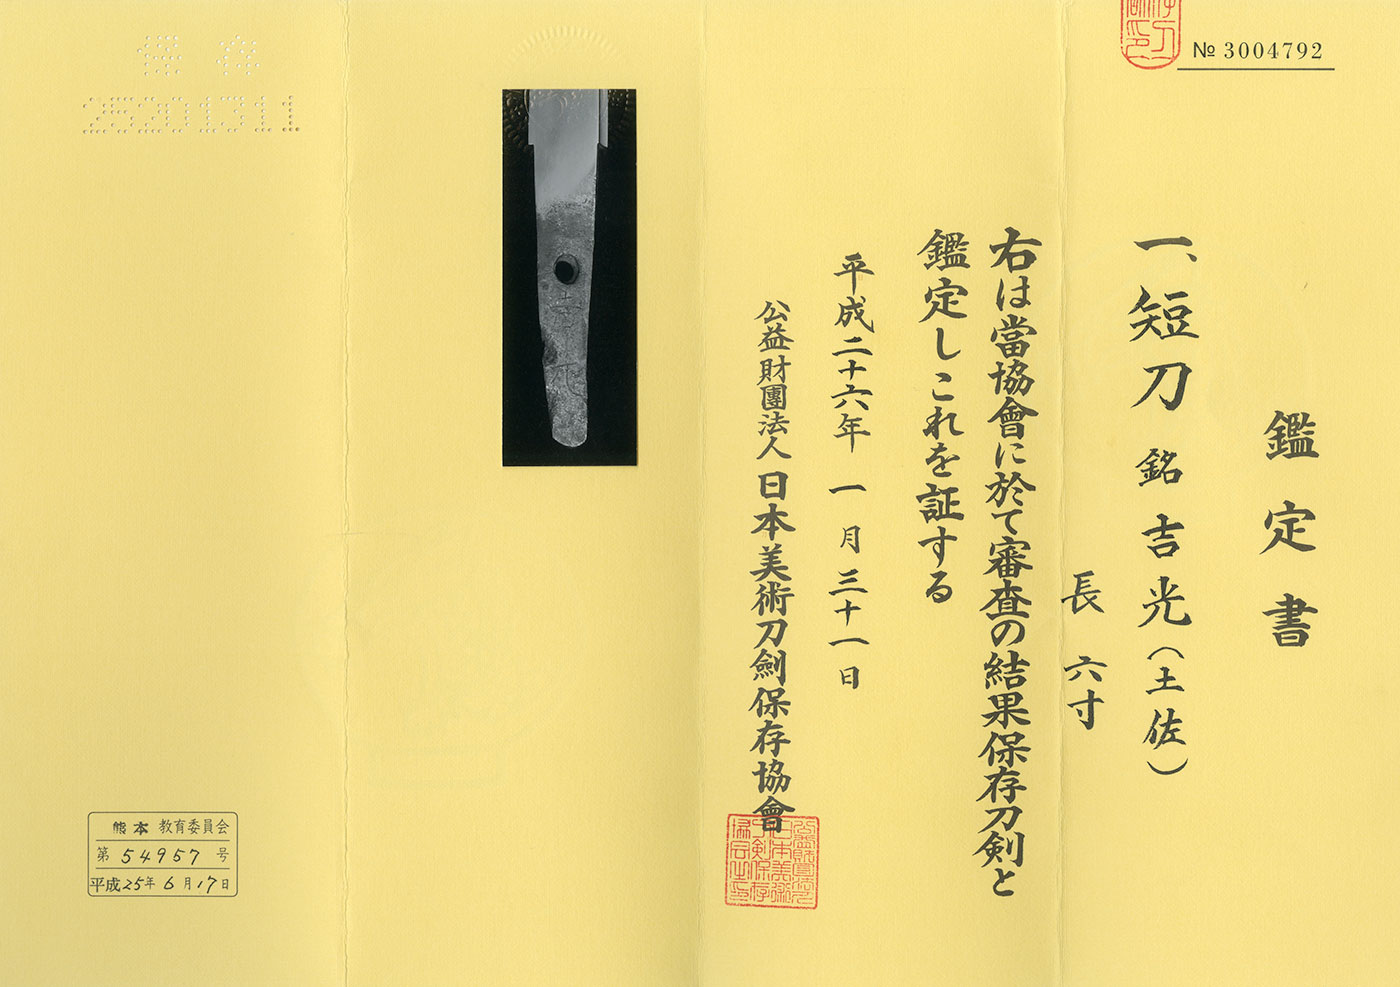 № 3004792
鑑定書
一、短刀 銘 吉光（土佐）
長 六寸
右は當協會に於て審査の結果保存刀剣と
鑑定しこれを証する
平成二十六年 一月 三十一日
公益財團法人 日本美術刀劍保存協會
保存
25201311
熊本 教育委員会
第 54957 号
平成25年 6月17日